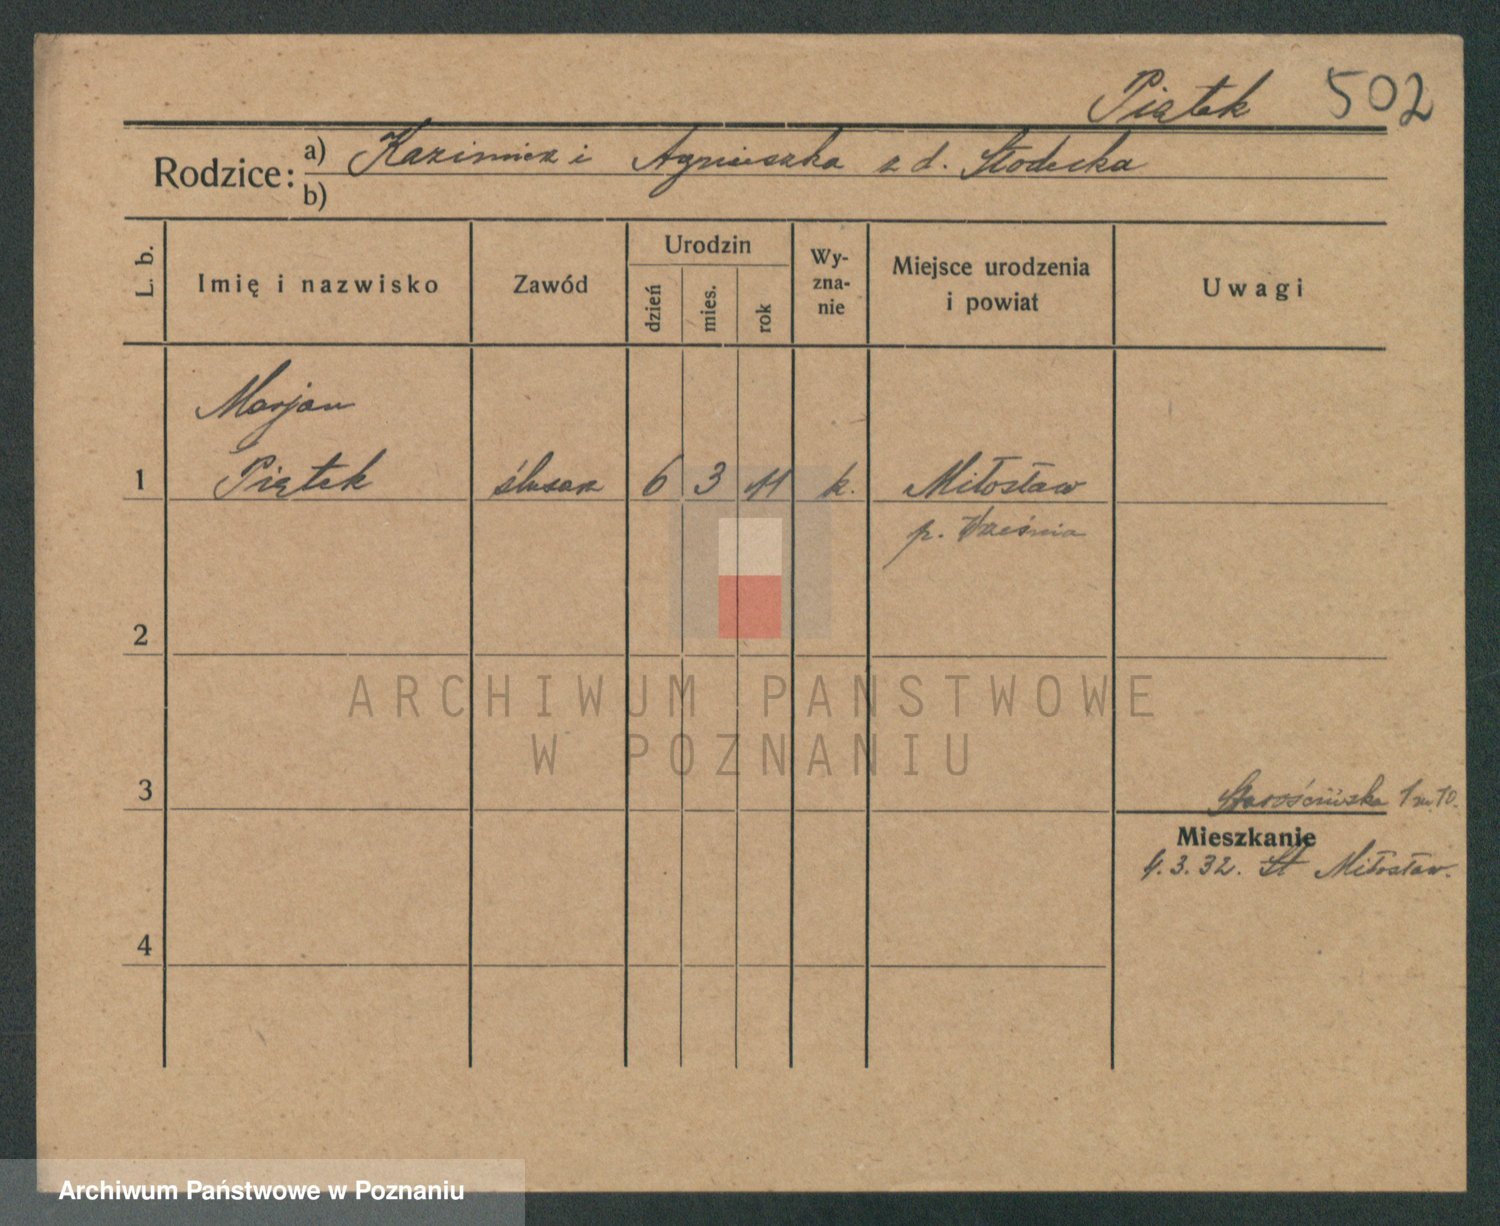 Piątek 502
Rodzice: a) Kazimierz i Agnieszka z d. Słodecka
b)
L. b. Imię i nazwisko Zawód Urodzin Wy- Miejsce urodzenia Uwagi
dzień mies. rok zna- i powiat
nie
Marjan
1 Piątek ślusarz 6 3 11 k. Miłosław
p. Września
2
ARCHIWUM PAŃSTWOWE
W POZNANIU
3 1 m. 10.
Mieszkanie
4. 3. 32. Miłosław.
4
Archiwum Państwowe w Poznaniu